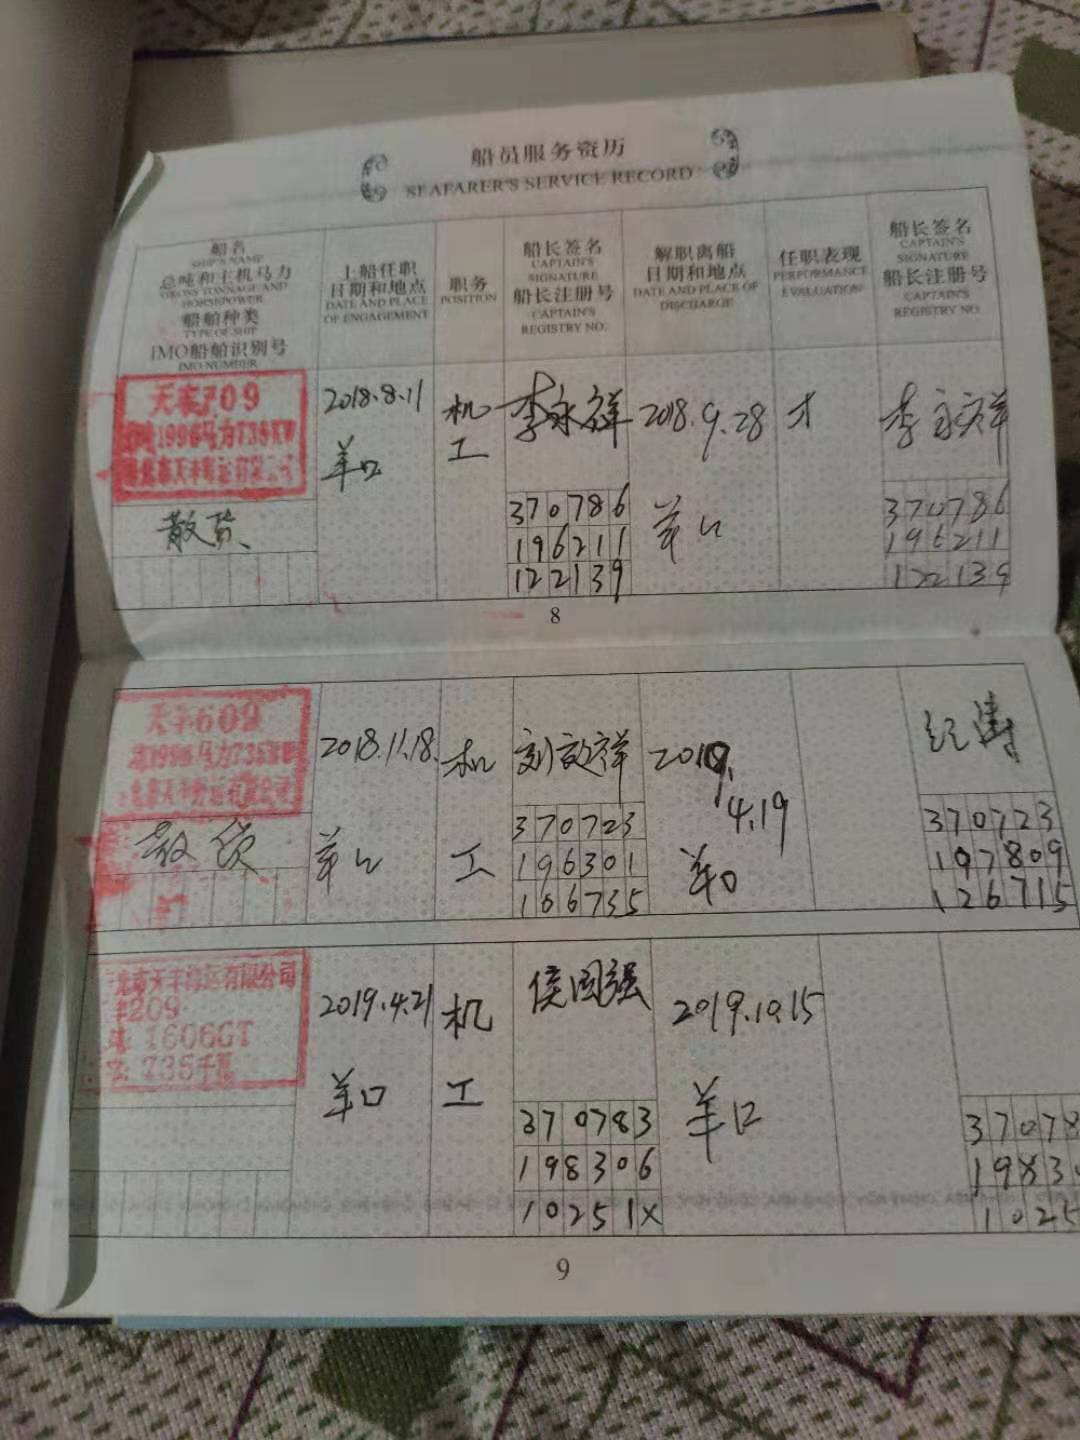 船员服务资历
SEAFARER'S SERVICE RECORD
船名
SHIP'S NAME
总吨和主机马力
GROSS TONNAGE AND
HORSEPOWER
船舶种类
TYPE OF SHIP
IMO船舶识别号
IMO NUMBER
上船任职
日期和地点
DATE AND PLACE
OF ENGAGEMENT
职务
POSITION
船长签名
CAPTAIN'S
SIGNATURE
船长注册号
CAPTAIN'S
REGISTRY NO.
解职离船
日期和地点
DATE AND PLACE OF
DISCHARGE
任职表现
PERFORMANCE
EVALUATION
船长签名
CAPTAIN'S
SIGNATURE
船长注册号
CAPTAIN'S
REGISTRY NO.
709
1996马力735KW
散货
2018.8.11
羊口
机
工
李永祥
370786
196211
122139
2018.9.28
羊口
李永祥
370786
196211
122139
8
天丰609
1996马力735KW
散货
2018.11.18.
羊口
机
工
刘效祥
370723
196301
166735
2019.
4.19
羊口
纪涛
370723
197809
126715
9
天丰海运有限公司
丰209
1606GT
735千瓦
2019.4.21
羊口
机
工
侯国强
370783
198306
10251X
2019.10.15
羊口
37078
19830
1025